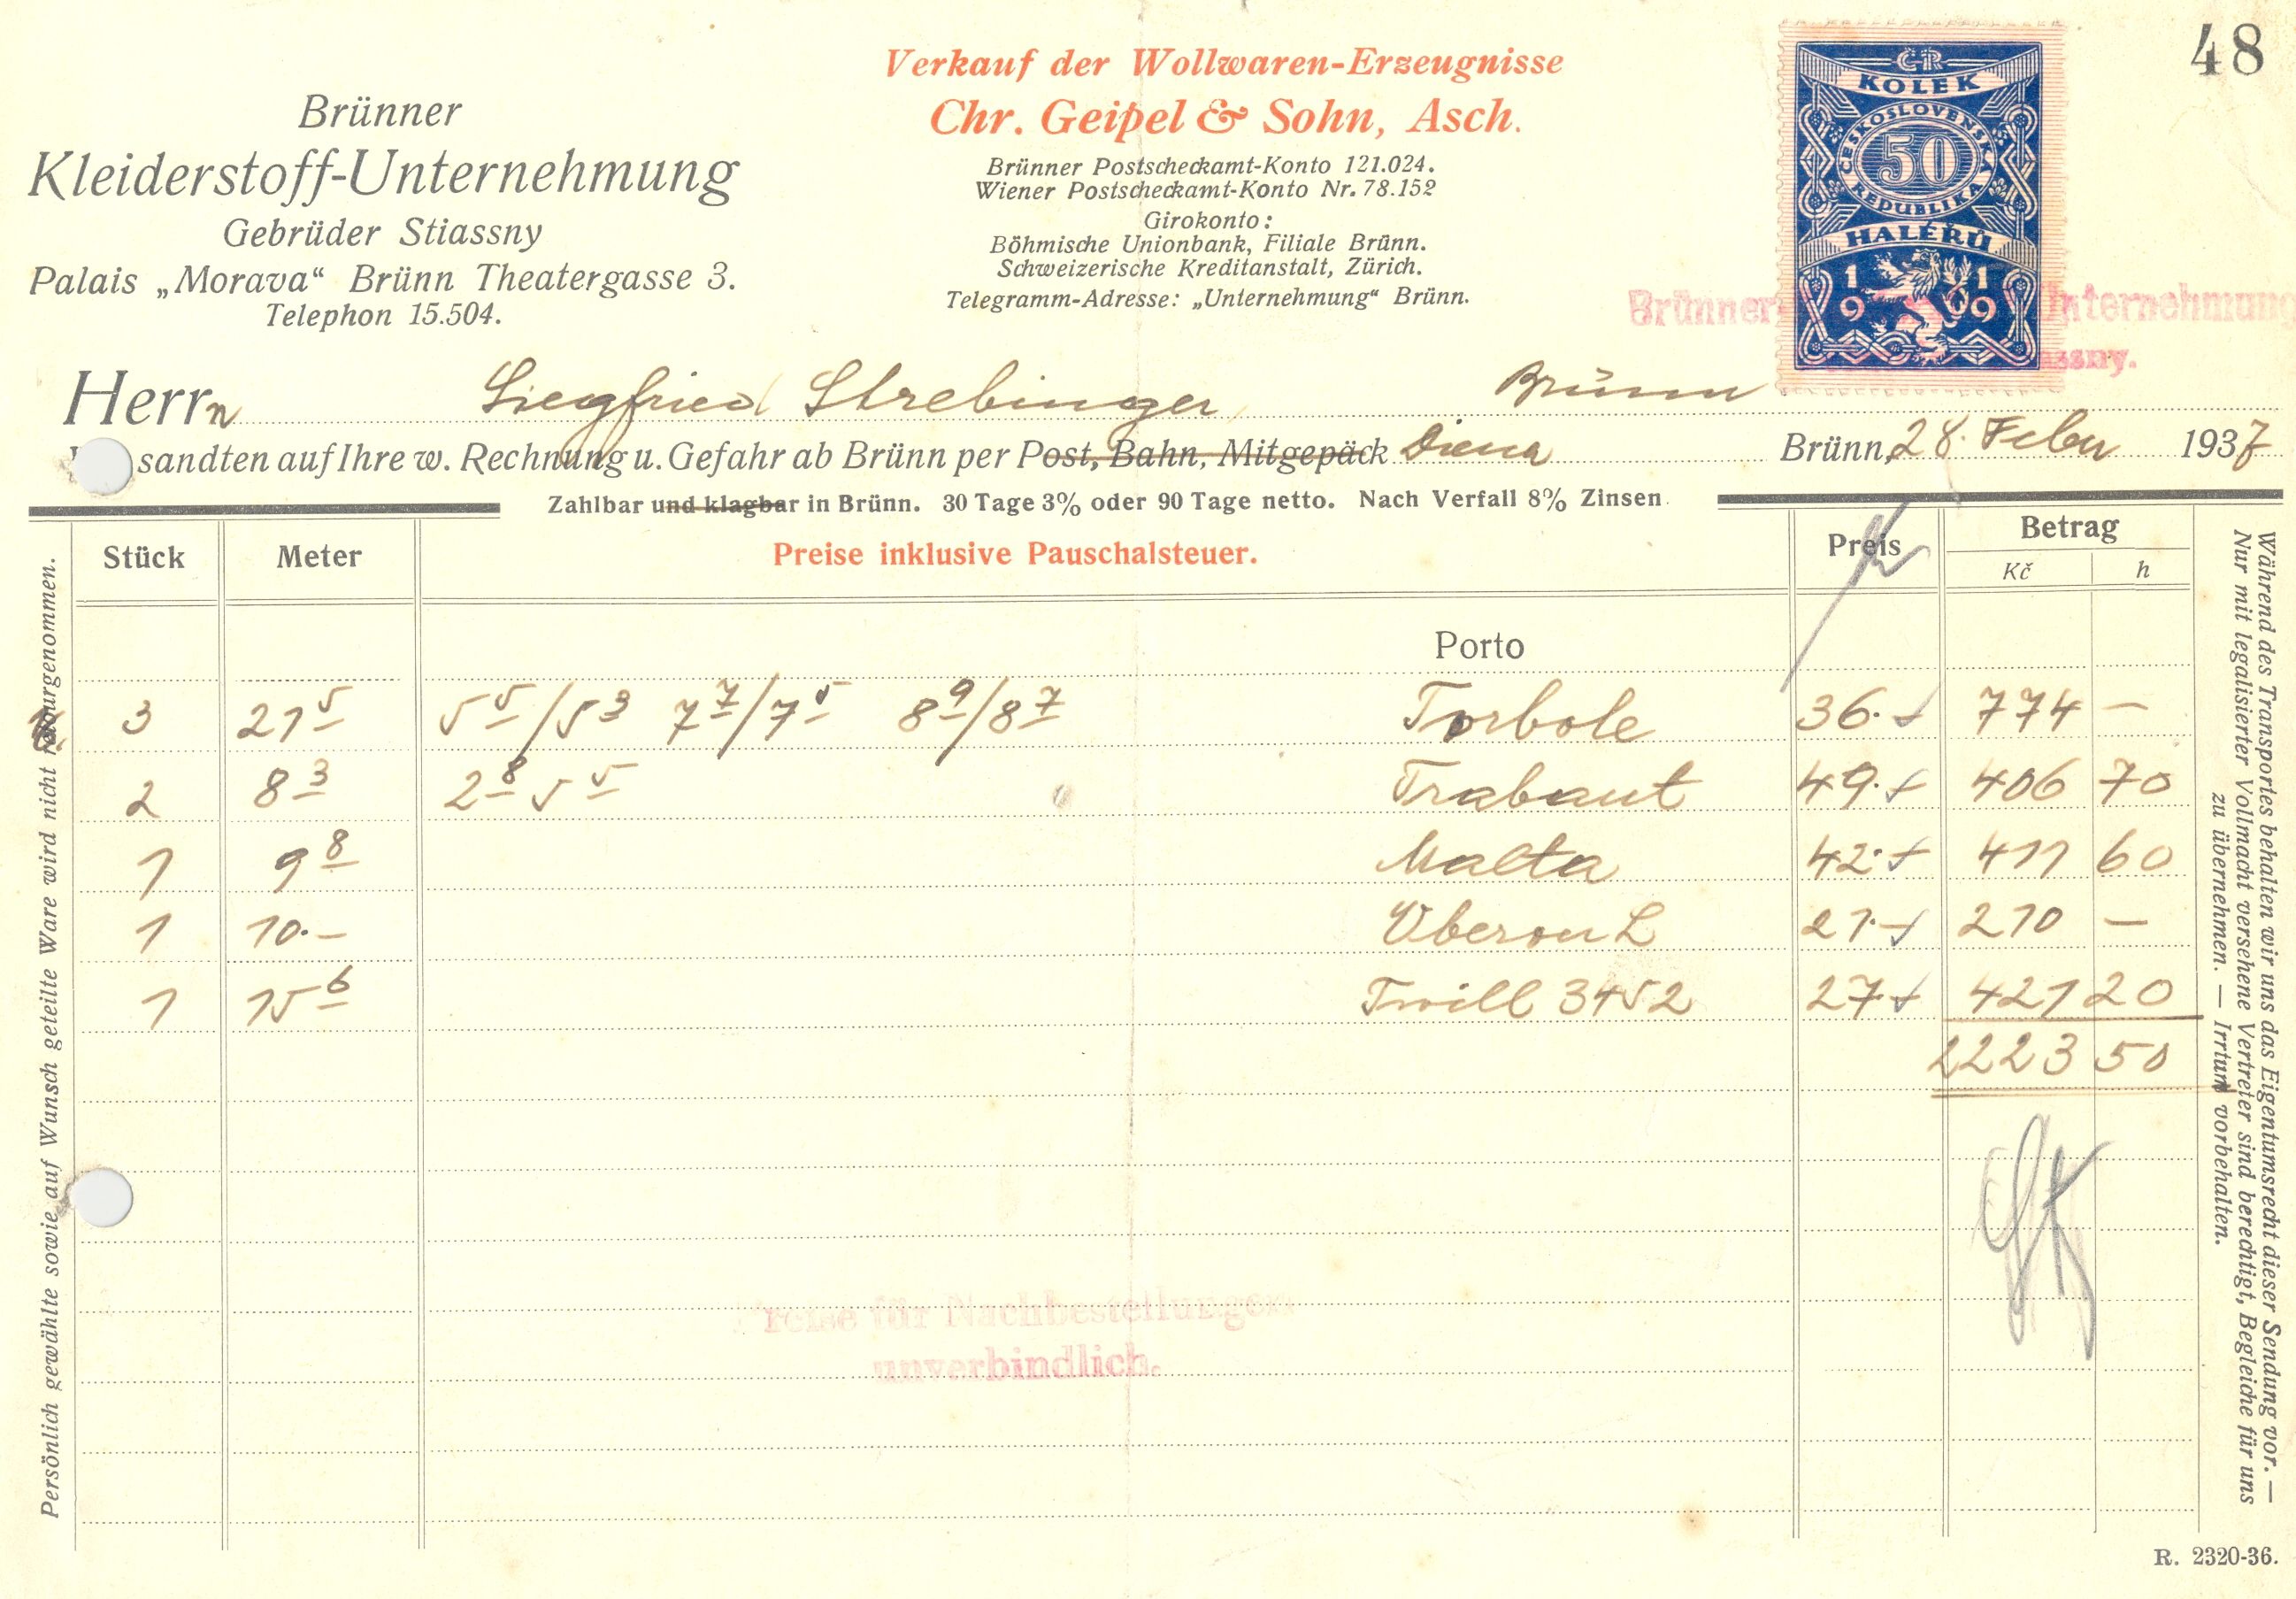 48
Verkauf der Wollwaren-Erzeugnisse
Chr. Geipel & Sohn, Asch.
Brünner Postscheckamt-Konto 121.024.
Wiener Postscheckamt-Konto Nr. 78.152
Girokonto:
Böhmische Unionbank, Filiale Brünn.
Schweizerische Kreditanstalt, Zürich.
Telegramm-Adresse: „Unternehmung“ Brünn.
Brünner
Kleiderstoff-Unternehmung
Gebrüder Stiassny
Palais „Morava“ Brünn Theatergasse 3.
Telephon 15.504.
ČR
KOLEK
ČESKOSLOVENSKÁ
50
REPUBLIKA
HALÉŘŮ
1919
Brünner Unternehmung
assny.
Herrn Siegfried Strebinger Brünn
sandten auf Ihre w. Rechnung u. Gefahr ab Brünn per Post, Bahn, Mitgepäck Diena Brünn, 28. Feber 1937
Zahlbar und klagbar in Brünn. 30 Tage 3% oder 90 Tage netto. Nach Verfall 8% Zinsen
Stück Meter Preise inklusive Pauschalsteuer. Preis Betrag
Kč h
Porto
3 21 5 5 5/5 3 7 7/7 5 8 9/8 7 Torbole 36.- 774 —
2 8 3 2 8 5 5 Trabant 49.- 406 70
1 9 8 Malta 42.- 411 60
1 10.- Oberon L 21.- 210 —
1 15 6 Twill 3452 27.- 421 20
2223 50
Preise für Nachbestellungen
unverbindlich.
Persönlich gewählte sowie auf Wunsch geteilte Ware wird nicht retourgenommen.
Während des Transportes behalten wir uns das Eigentumsrecht dieser Sendung vor. —
Nur mit legalisierter Vollmacht versehene Vertreter sind berechtigt, Begleiche für uns
zu übernehmen. — Irrtum vorbehalten.
R. 2320-36.